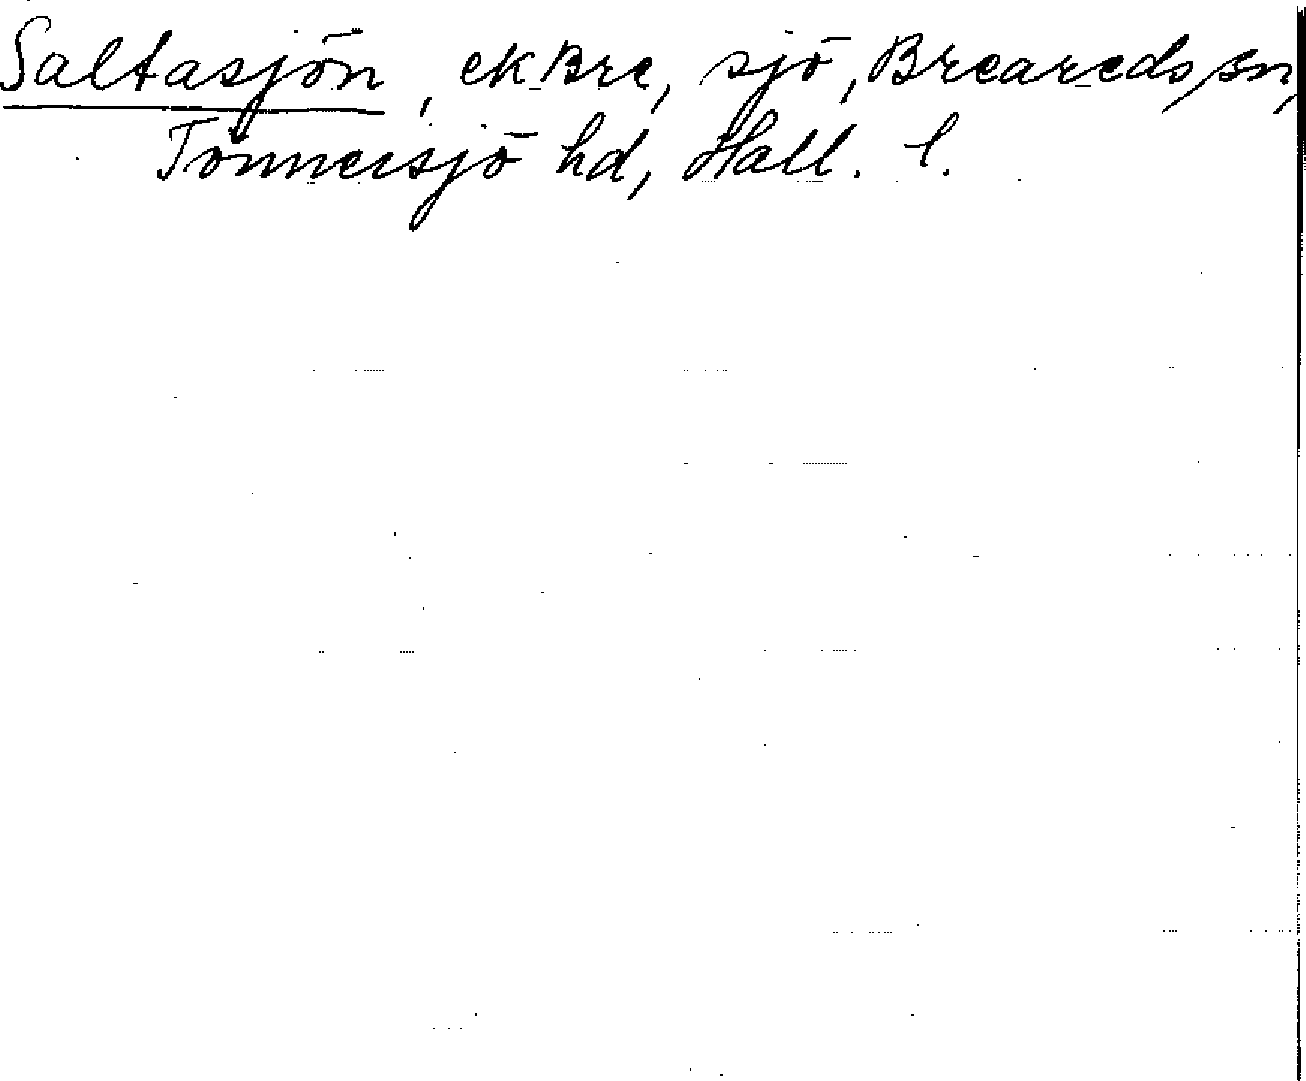 Saltasjön, ekBre, sjö, Breareds sn,
Tönnersjö hd, Hall. l.